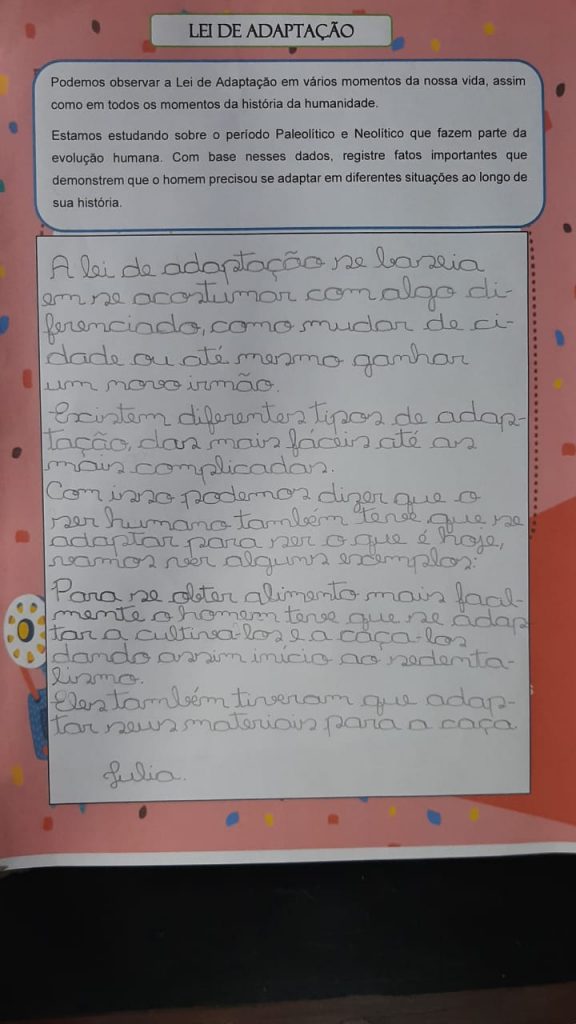 LEI DE ADAPTAÇÃO
Podemos observar a Lei de Adaptação em vários momentos da nossa vida, assim
como em todos os momentos da história da humanidade.
Estamos estudando sobre o período Paleolítico e Neolítico que fazem parte da
evolução humana. Com base nesses dados, registre fatos importantes que
demonstrem que o homem precisou se adaptar em diferentes situações ao longo de
sua história.
A lei de adaptação se baseia
em se acostumar com algo di-
ferenciado, como mudar de ci-
dade ou até mesmo ganhar
um novo irmão.
Existem diferentes tipos de adap-
tação, das mais fáceis até as
mais complicadas.
Com isso podemos dizer que o
ser humano também teve que se
adaptar para ser o que é hoje,
vamos ver alguns exemplos:
Para se obter alimento mais facil-
mente o homem teve que se adap
tar a cultiva-los e a caça-los
dando assim início ao sedenta-
lismo.
Eles também tiveram que adap-
tar seus materiais para a caça
Julia.